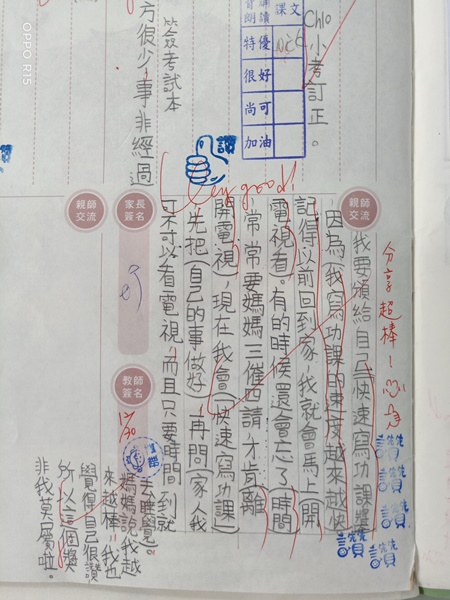 Ch10小考訂正。
課文
特優
很好
尚可
加油
簽考試本
方很少事非經過
讚
Very good!
親師交流
分享超棒！
我要頒給自己「快速寫功課獎」
因為我寫功課的速度越來越快
記得以前回到家，我就會馬上開
電視看。有的時候還會忘了時間
常常要媽媽三催四請，才肯離
開電視，現在我會「快速寫功課」
先把自己的事做好，再問家人我
可不可以看電視，而且只要時間到就
去睡覺。
媽媽說我越
來越棒，我也
覺得自己很讚
所以這個獎
非我莫屬啦。
家長簽名
教師簽名
親師交流
讚
讚
讚
讚
讚
OPPO R15